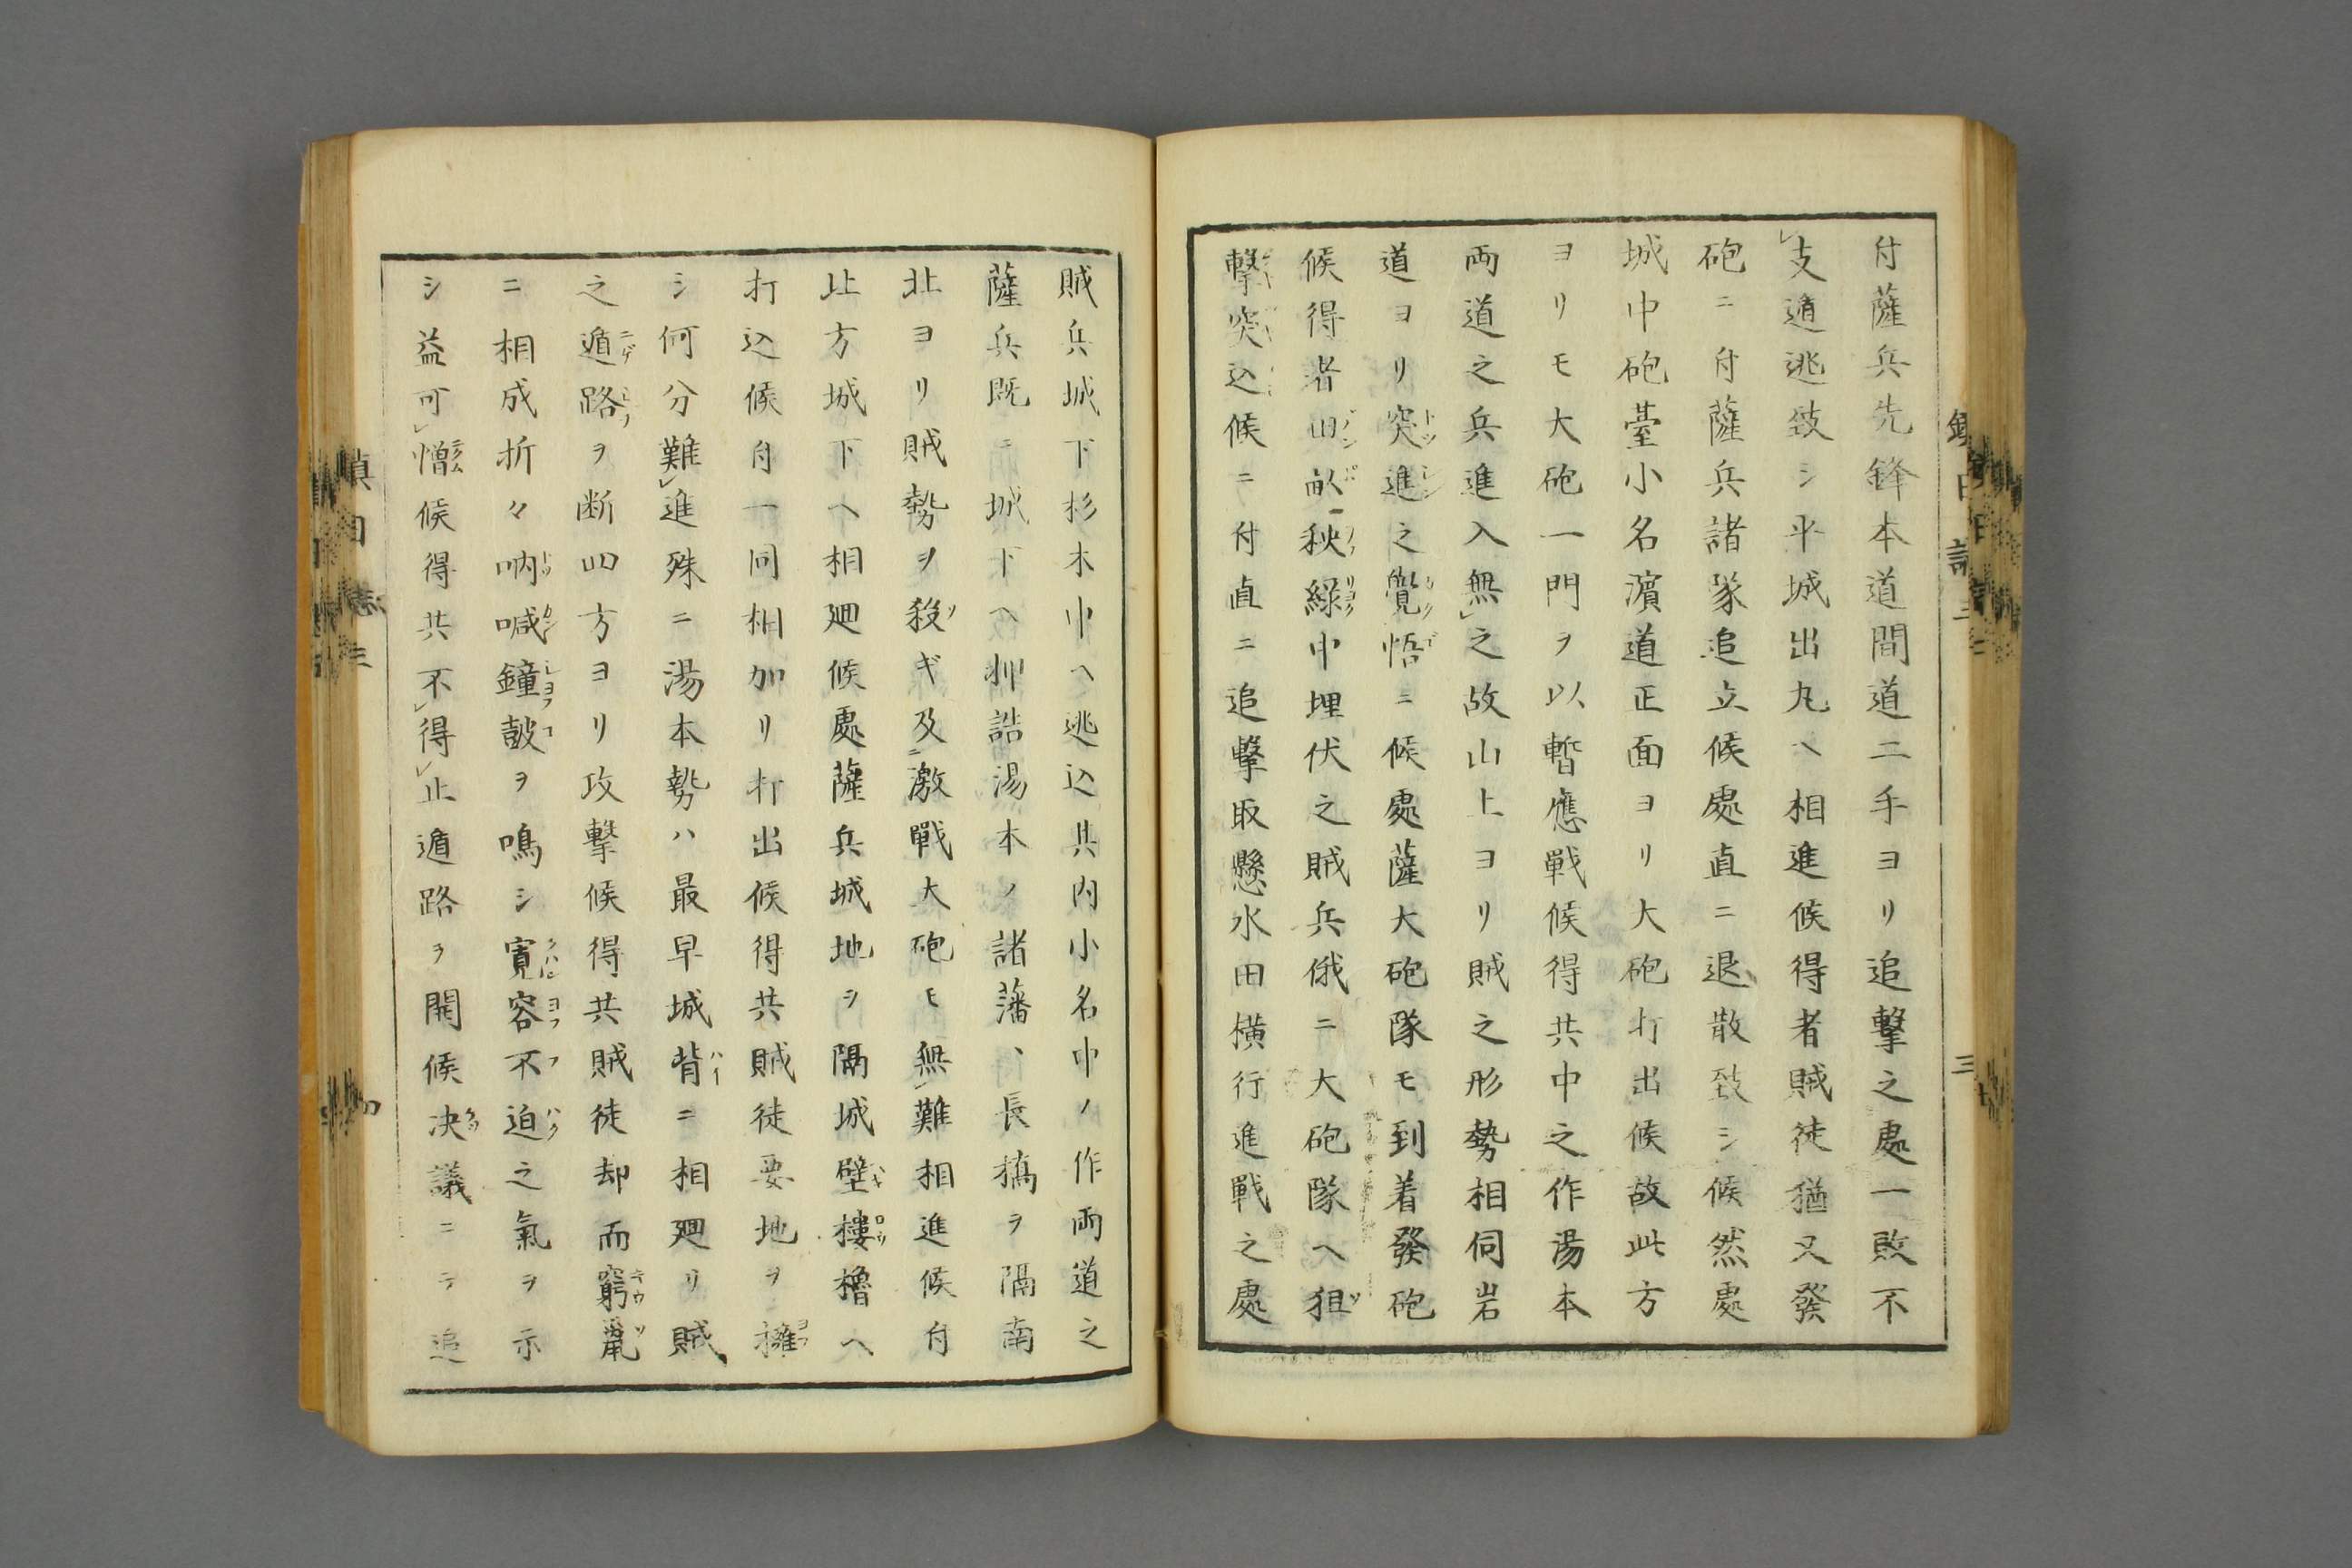 付薩兵先鋒本道間道二手ヨリ追撃之處一敗不
支遁逃致シ平城出丸ヘ相進候得者賊徒猶又發
砲ニ付薩兵諸隊追立候處直ニ退散致シ候然處
城中砲臺小名濵道正面ヨリ大砲打出候故此方
ヨリモ大砲一門ヲ以暫應戰候得共中之作湯本
両道之兵進入無之故山上ヨリ賊之形勢相伺岩
道ヨリ突進之覺悟ニ候處薩大砲隊モ到着發砲
候得者田畝秧緑中埋伏之賊兵俄ニ大砲隊ヘ狙
撃突込候ニ付直ニ追撃取懸水田横行進戰之處
賊兵城下杉木中ヘ逃込其内小名中ノ作両道之
薩兵既ニ城下ヘ押詰湯本ノ諸藩、長橋ヲ隔南
北ヨリ賊勢ヲ殺ギ及激戰大砲モ無難相進候付
北方城下ヘ相廻候處薩兵城地ヲ隔城壁樓櫓ヘ
打込候付一同相加リ打出候得共賊徒要地ヲ擁
シ何分難進殊ニ湯本勢ハ最早城背ニ相廻リ賊
之遁路ヲ断四方ヨリ攻撃候得共賊徒却而窮鼠
ニ相成折々吶喊鐘皷ヲ鳴シ寛容不迫之氣ヲ示
シ益可憎候得共不得止遁路ヲ開候决議ニテ追